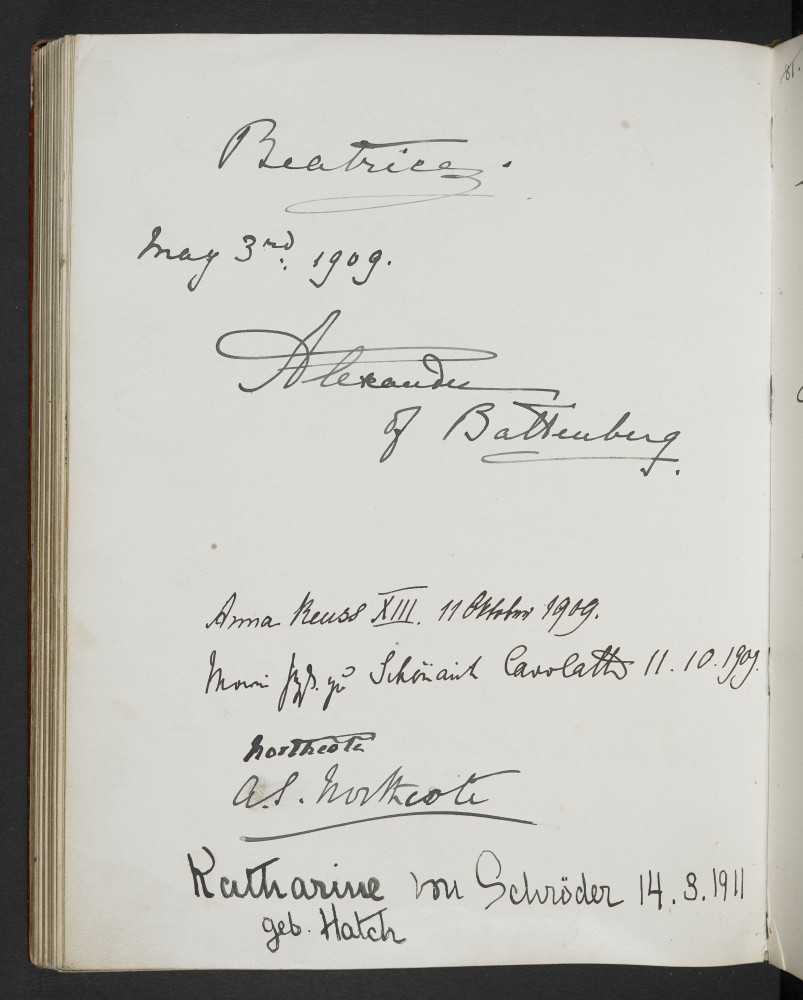 Beatrice.
May 3rd. 1909.
Alexander
of Battenberg.
Anna Reuss XIII. 11 Oktober 1909.
zu Schönaich Carolath 11.10.1909.
Northcote
A.S. Northcote
Katharine von Schröder 14.3.1911
geb. Hatch
81.